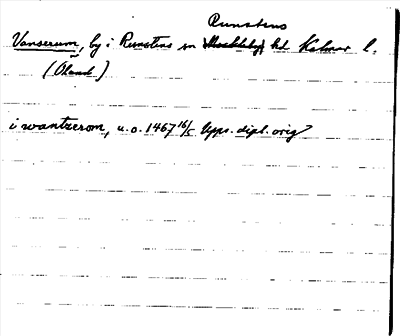 Runstens
Vanserum, by i Runstens sn Möckleby hd Kalmar l.
(Öland)
i wantzerom, u.o. 1467 16/5 Upps. dipl. orig